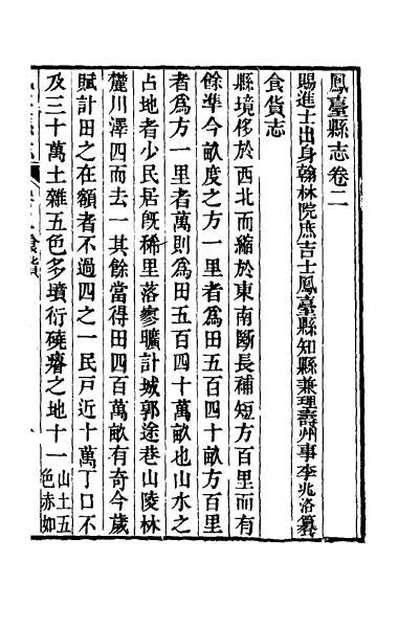 鳳臺縣志卷二
賜進士出身翰林院庶吉士鳳臺縣知縣兼理壽州事李兆洛纂
食貨志
縣境移於西北而縮於東南斷長補短方百里而有
餘準今畝度之方一里者爲田五百四十畝方百里
者爲方一里者萬則爲田五百四十萬畝也山水之
占地者少民居旣稀里落寥曠計城郭途巷山陵林
麓川澤四而去一其餘當得田四百萬畝有奇今歲
賦計田之在額者不過四之一民戸近十萬丁口不
及三十萬土雜五色多墳衍磽瘠之地十一山土五
色赤如